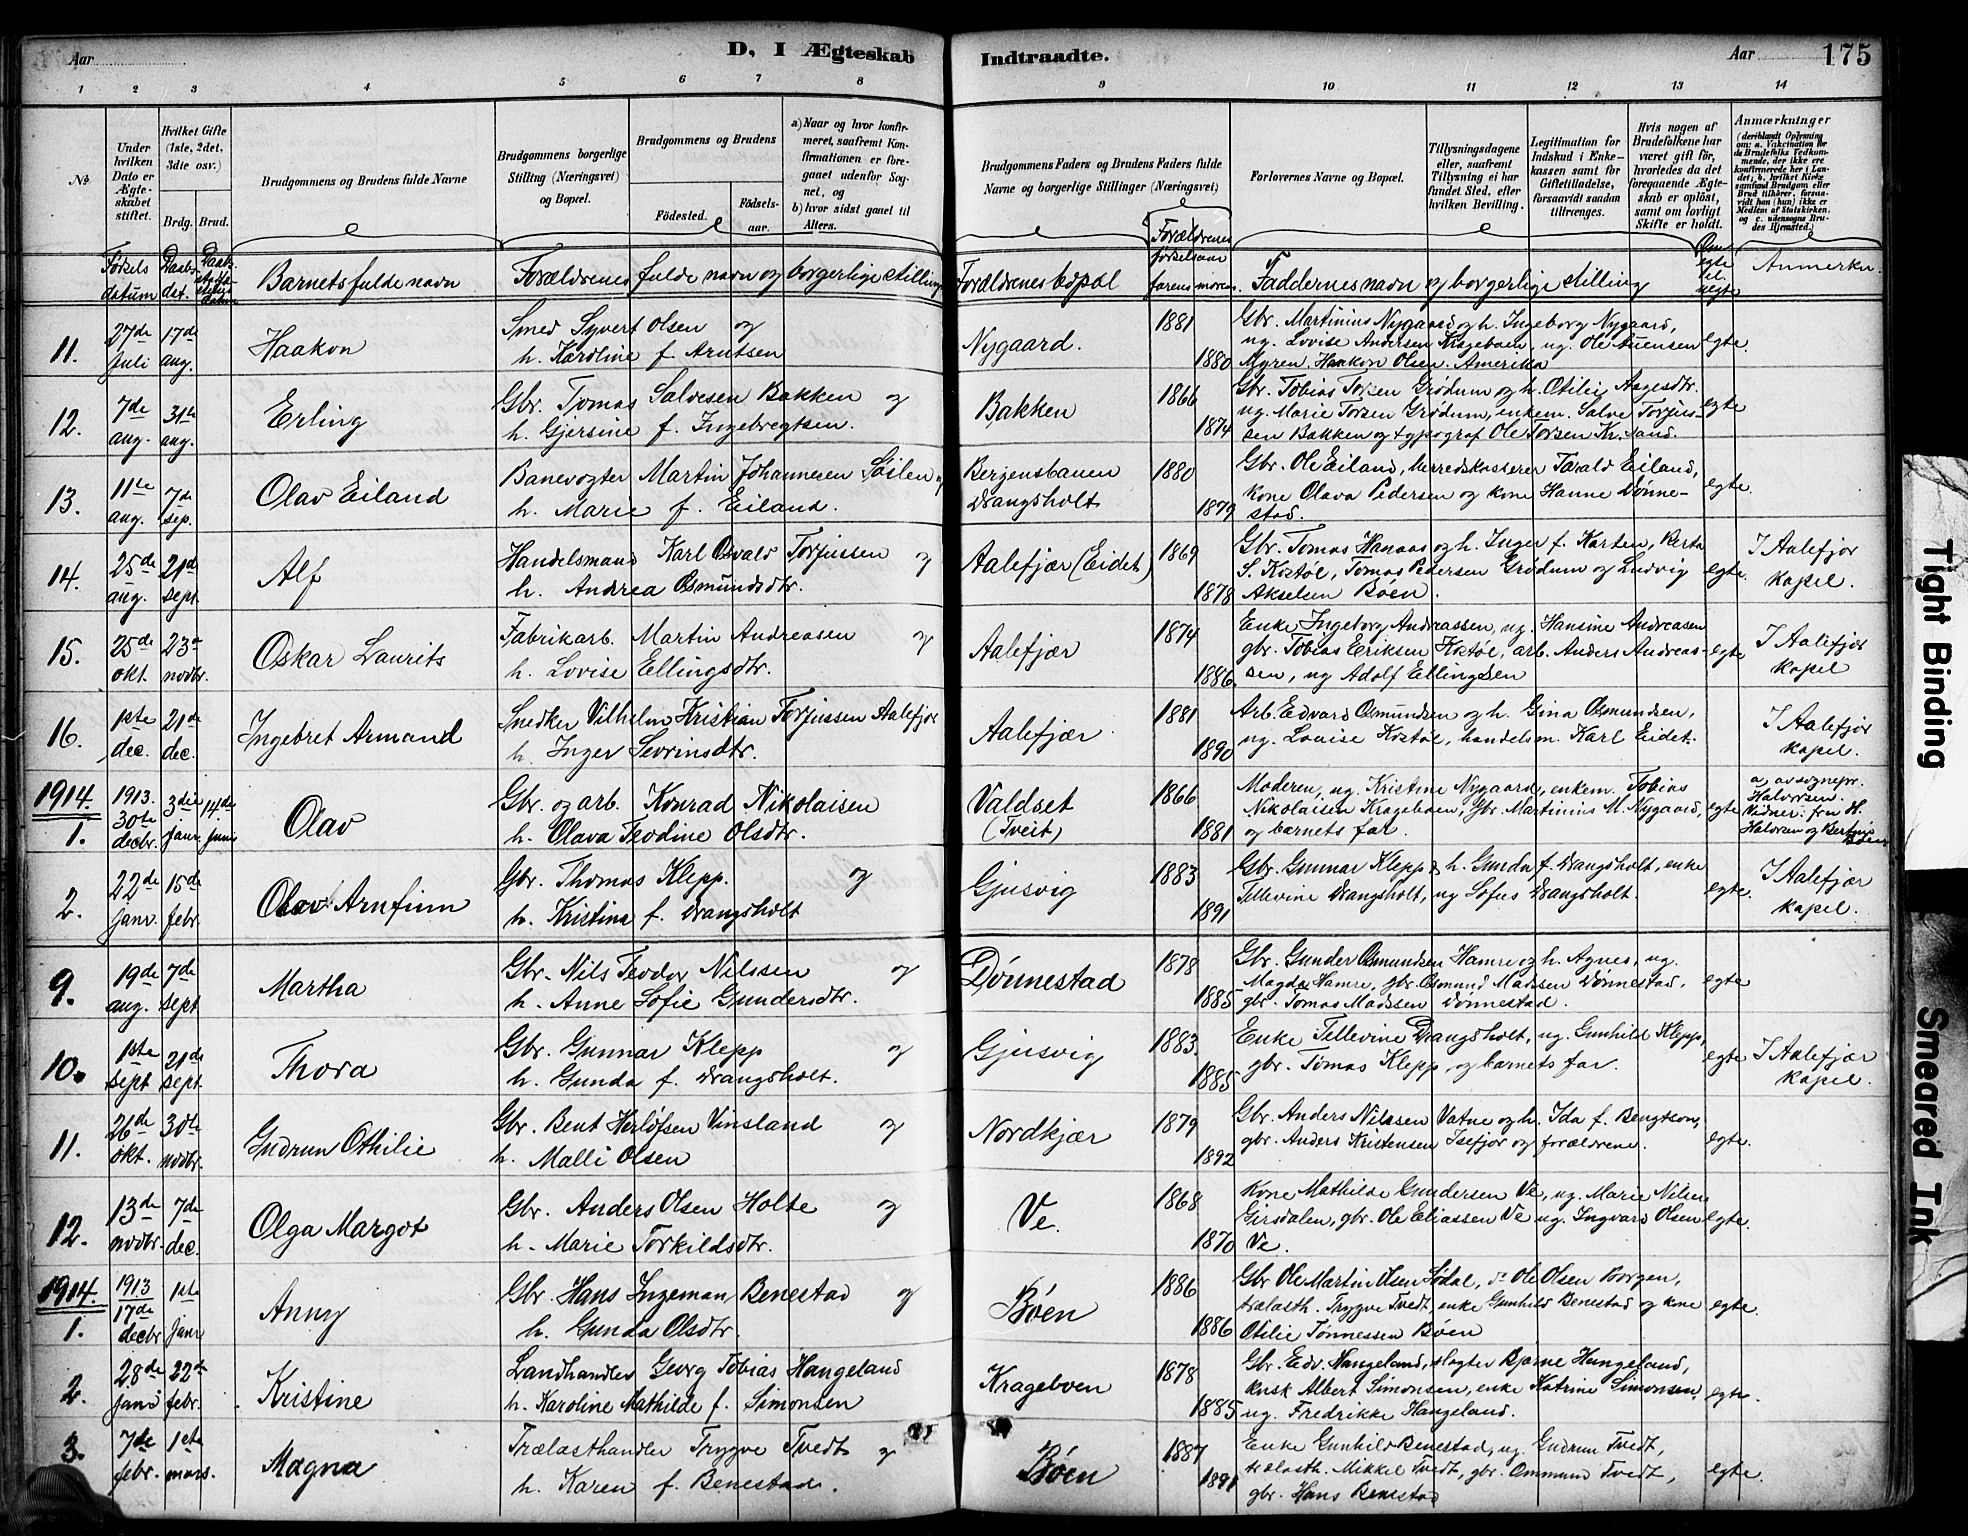 Aar D, I Ægteskab Indtraadte. Aar 175
1 2 3 4 5 6 7 8 9 10 11 12 13 14
No
Under hvilken Dato er Ægteskabet stiftet.
Hvilket Gifte (1ste, 2det, 3die osv.)
Brdg. Brud.
Brudgommens og Brudens fulde Navne
Brudgommens borgerlige Stilling (Næringsvei) og Bopæl.
Brudgommens og Brudens
Fødested. Fødselsaar.
a) Naar og hvor konfirmeret, saafremt Konfirmationen er foregaaet udenfor Sognet, og
b) hvor sidst gaaet til Alters.
Brudgommens Faders og Brudens Faders fulde Navne og borgerlige Stillinger (Næringsvei)
Forlovernes Navne og Bopæl.
Tillysningsdagene eller, saafremt Tillysning ei har fundet Sted, efter hvilken Bevilling.
Legitimation for Indskud i Enkekassen samt for Giftetilladelse, forsaavidt saadan tiltrænges.
Hvis nogen af Brudefolkene har været gift før, hvorledes da det foregaaende Ægteskab er opløst, samt om lovligt Skifte er holdt.
Anmærkninger
(deriblandt Oplysning om: a. Vakcination for de Brudefolks Vedkommende, der ikke ere konfirmerede her i Landet; b. hvilket Kirkesamfund Brudgom eller Brud tilhører, forsaavidt han (hun) ikke er Medlem af Statskirken, og c. udensogns Brudes Hjemsted.)
Fødsels datum Daabsdet. Barnets fulde navn Forældrenes fulde navn og borgerlige stilling Forældrenes bopæl Forældrenes fødselsaar farens morens Faddernes navn og borgerlige stilling Om egte el. uegte Anmerkn.
11. 27de juli 17de aug. Haakon Smed Syvert Olsen og Nygaard. 1881 Gbr. Martinius Nygaard og h. Ingeborg Nygaard,
h. Karoline f. Arntsen 1880 ug. Lovise Andersen Krageboen, ug. Ole egte.
Myren. Haakon Olsen. Amerika
12. 7de aug. 31te aug. Erling Gbr. Tomas Salvesen Bakken og Bakken 1866 Gbr. Tobias Torsen Grødum og h. Otilie Aagesdtr.
h. Gjersine f. Ingebregtsen. 1874 ug. Marie Torsen Grødum, enkem. Salve Torjus- egte
sen Bakken og typograf Ole Torsen Kr.sand.
13. 11te aug. 7de sep. Olav Eiland Banevogter Martin Johannesen Søslen og Bergensbanen 1880 Gbr. Ole Eiland, herredskasserer Tarald Eiland,
h. Marie f. Eiland. Drangsholt 1879 kone Olava Pedersen og kone Hanne Dønne- egte.
stad.
14. 25de aug. 21de sept. Alf Handelsmand Karl Osvald Torjussen og Aalefjær (Eidet) 1869 Gbr. Tomas Hanaas og h. Inger f. Karten, Berta I Aalefjør
h. Andrea Osmundsdtr. 1878 S. Kostøl, Tomas Pedersen Grødum og Ludvig egte. kapel.
Akselsen Bøen.
15. 25de okt. 23de novbr. Oskar Laurits Fabrikarb. Martin Andreasen og Aalefjær 1874 Enke Ingeborg Andreassen, ug. Hansine Andreasen I Aalefjør
h. Lovise Ellingsdtr. 1886. gbr. Tobias Eriksen Kostøl, arb. Anders Andreas- egte kapel
sen, ug Adolf Ellingsen
16. 1ste dec. 21de dec. Ingebret Armand Snedker Vilhelm Kristian Torjussen Aalefjør Aalefjær 1881 Arb. Edvard Osmundsen og h. Gina Osmundsen, I Aalefjør
h. Inger Sevrinsdtr. 1890 ug. Louise Kostøl, handelsm. Karl Eidet. kapel.
1914. 1. 1913. 30te decbr. 3die janr. 14de juni Olav Gbr. og arb. Konrad Nikolaisen Valdset 1866 Moderen, ug. Kristine Nygaard, enkem. Tobias a, av sognepr. Halvorsen.
h. Olava Teodine Olsdtr. (Tveit) 1881 Nikolaisen Krageboen, gbr. Martinius M. Nygaard, egte Vidner: fru H.
og barnets far. Halvorsen og Bertinius Bøen
2. 22de janv. 15de febr. Olav Arnfinn Gbr. Thomas Klepp. og Gjusvig 1883 Gbr. Gunnar Klepp & h. Gunda f. Drangsholt, enke I Aalefjær
h. Kristina f. Drangsholt 1891 Tellevine Drangsholt, ug Sofus Drangsholt. egte. kapel.
9. 19de aug. 7de sept Martha Gbr. Nils Teodor Nilssen og Dønnestad 1878 Gbr. Gunder Osmundsen Hamre og h. Agnes, ug.
h. Anne Sofie Gundersdtr. 1885 Magda Hamre, gbr. Osmund Madssen Dønnestad, egte
gbr. Tomas Madssen Dønnestad.
10. 1ste sept 21de sept. Thora Gbr. Gunnar Klepp og Gjusvig 1883. Enke Tellevine Drangsholt, ug. Gunhild Klepp, egte I Aalefjær
h. Gunda f. Drangsholt. 1885 gbr. Tomas Klepp og barnets far. kapel.
11. 26de okt. 30te novbr. Gudrun Othilie Gbr. Bent Herlofsen Vinsland og Nordkjær 1879 Gbr. Anders Nilssen Vatne og h. Ida f. Bengtson,
h. Malli Olsen 1892 gbr. Anders Kristensen Isefjør og forældrene. egte.
12. 13de novbr. 7de dec. Olga Margot Gbr. Anders Olsen Holte og Ve. 1868 Kone Mathilde Gundersen Ve, ug. Marie Nilsen
h. Marie Torkildsdtr. 1870 Girsdalen, gbr. Ole Eliassen Ve ug. Ingvard Olsen egte.
Ve.
1914. 1. 1913 17de decbr 1ste janr Anny Gbr. Hans Ingeman Benestad og Bøen 1886 Gbr Ole Martin Olsen Sødal, do Ole Olsen Borgen,
h. Gunda Olsdtr. 1886 trælasth. Trygve Tvedt, enke Gunhild Benestad og kone egte.
Otilie Tønnessen Bøen
2. 28de jan. 22de febr. Kristine Landhandler Georg Tobias Hangeland Krageboen 1878 Gbr. Edv. Hangeland, slagter Bjarne Hangeland,
h. Karoline Mathilde f. Simonsen 1885 kusk Albert Simonsen, enke Katrine Simonsen, egte
ug. Fredrikke Hangeland.
3. 7de febr. 1ste mars. Magna Trælasthandler Trygve Tvedt og Bøen 1887 Enke Gunhild Benestad, ug. Gudrun Tvedt,
h. Karen f. Benestad. 1891 trælasth. Mikkel Tvedt, gbr. Ommund Tvedt, egte.
gbr. Hans Benestad
Tight Binding
Smeared Ink